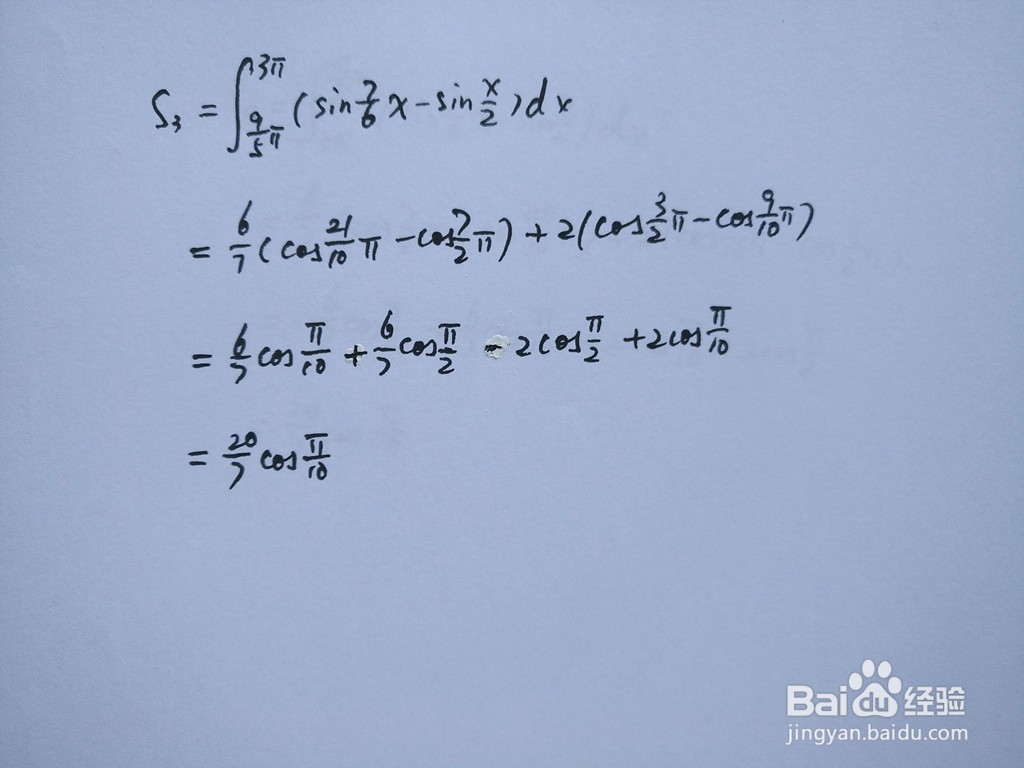 S₃ = ∫_{9/5 π}^{3π} (sin 7/6 x - sin x/2) dx
= 6/7 (cos 21/10 π - cos 7/2 π) + 2(cos 3/2 π - cos 9/10 π)
= 6/7 cos π/10 + 6/7 cos π/2 - 2cos π/2 + 2cos π/10
= 20/7 cos π/10
Baidu经验
jingyan.baidu.com